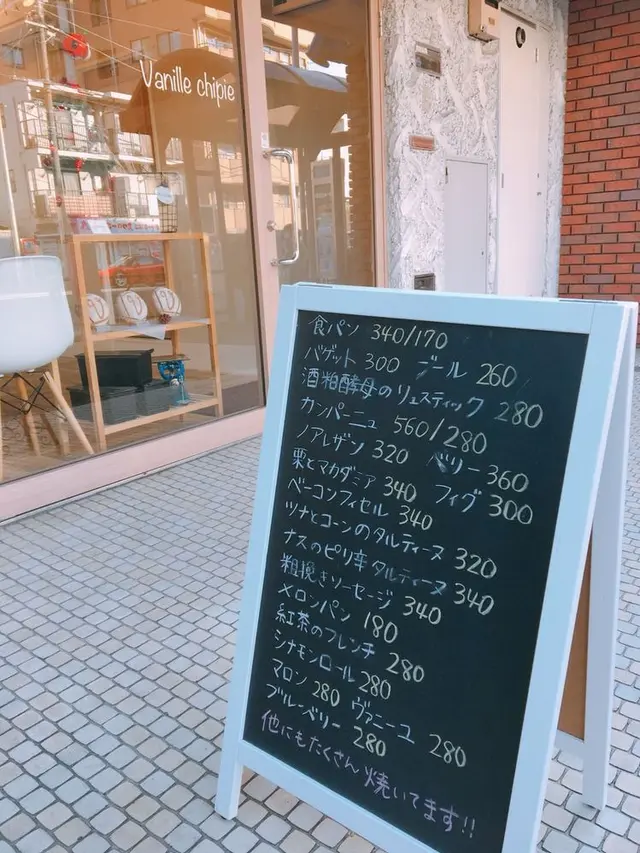 Vanille chipie
食パン 340/170
バゲット 300 ブール 260
酒粕酵母のリュスティック 280
カンパーニュ 560/280
ノアレザン 320 ベリー 360
栗とマカダミア 340 フィグ 300
ベーコンフィセル 340
ツナとコーンのタルティーヌ 320
ナスのピリ辛タルティーヌ 340
粗挽きソーセージ 340
メロンパン 180
紅茶のフレンチ 280
シナモンロール 280
マロン 280 ヴァニーユ 280
ブルーベリー 280
他にもたくさん焼いてます!!